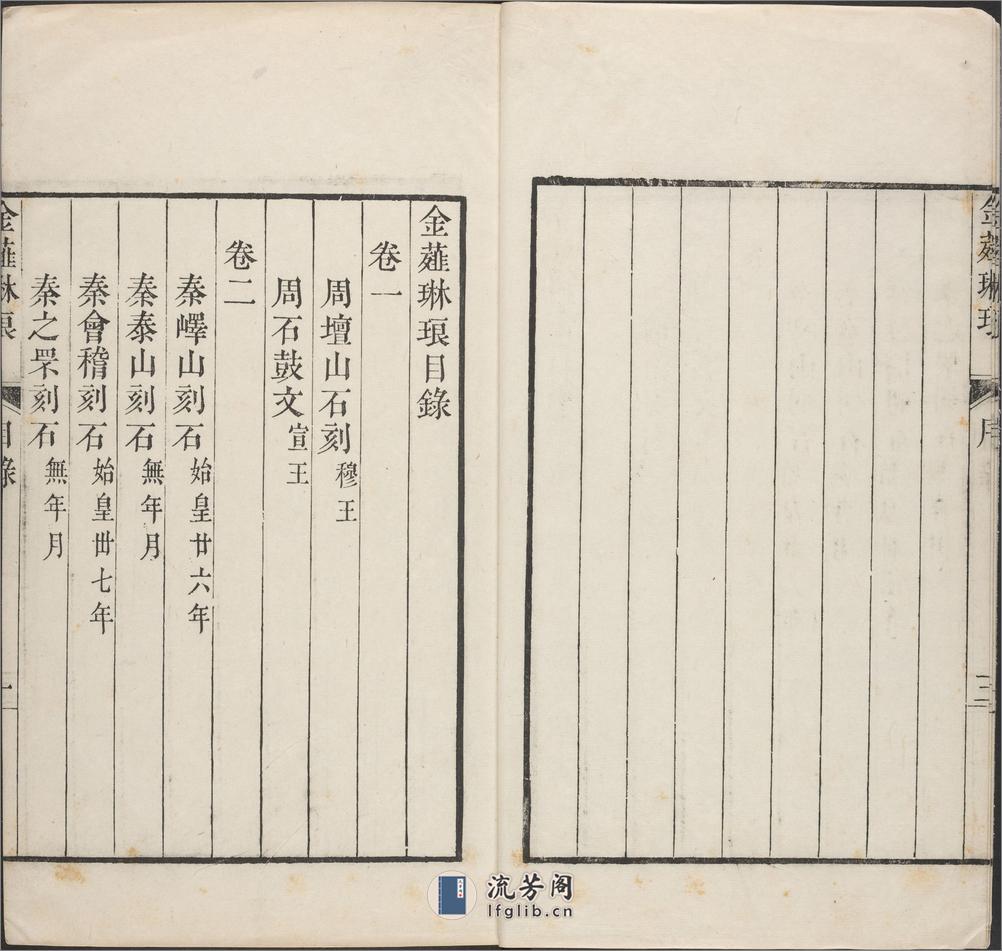 金薤琳琅
序
二
金薤琳琅目錄
卷一
周壇山石刻穆王
周石鼓文宣王
卷二
秦嶧山刻石始皇廿六年
秦泰山刻石無年月
秦會稽刻石始皇卅七年
秦之罘刻石無年月
金薤琳琅
目錄
一
流芳阁
lfglib.cn